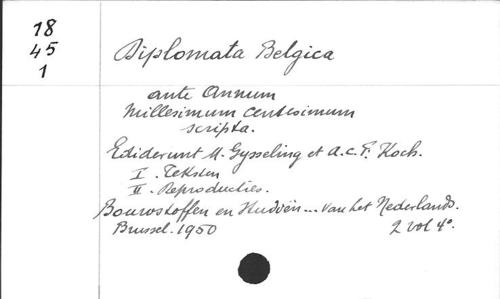 18
45
1
Diplomata Belgica
ante Annum
Millesimum Centesimum
scripta.
Ediderunt M. Gysseling et A.C.F. Koch.
I. Teksten
II. Reproducties.
Bouwstoffen en Studiën... van het Nederlands.
Brussel. 1950
2 vol 4º.